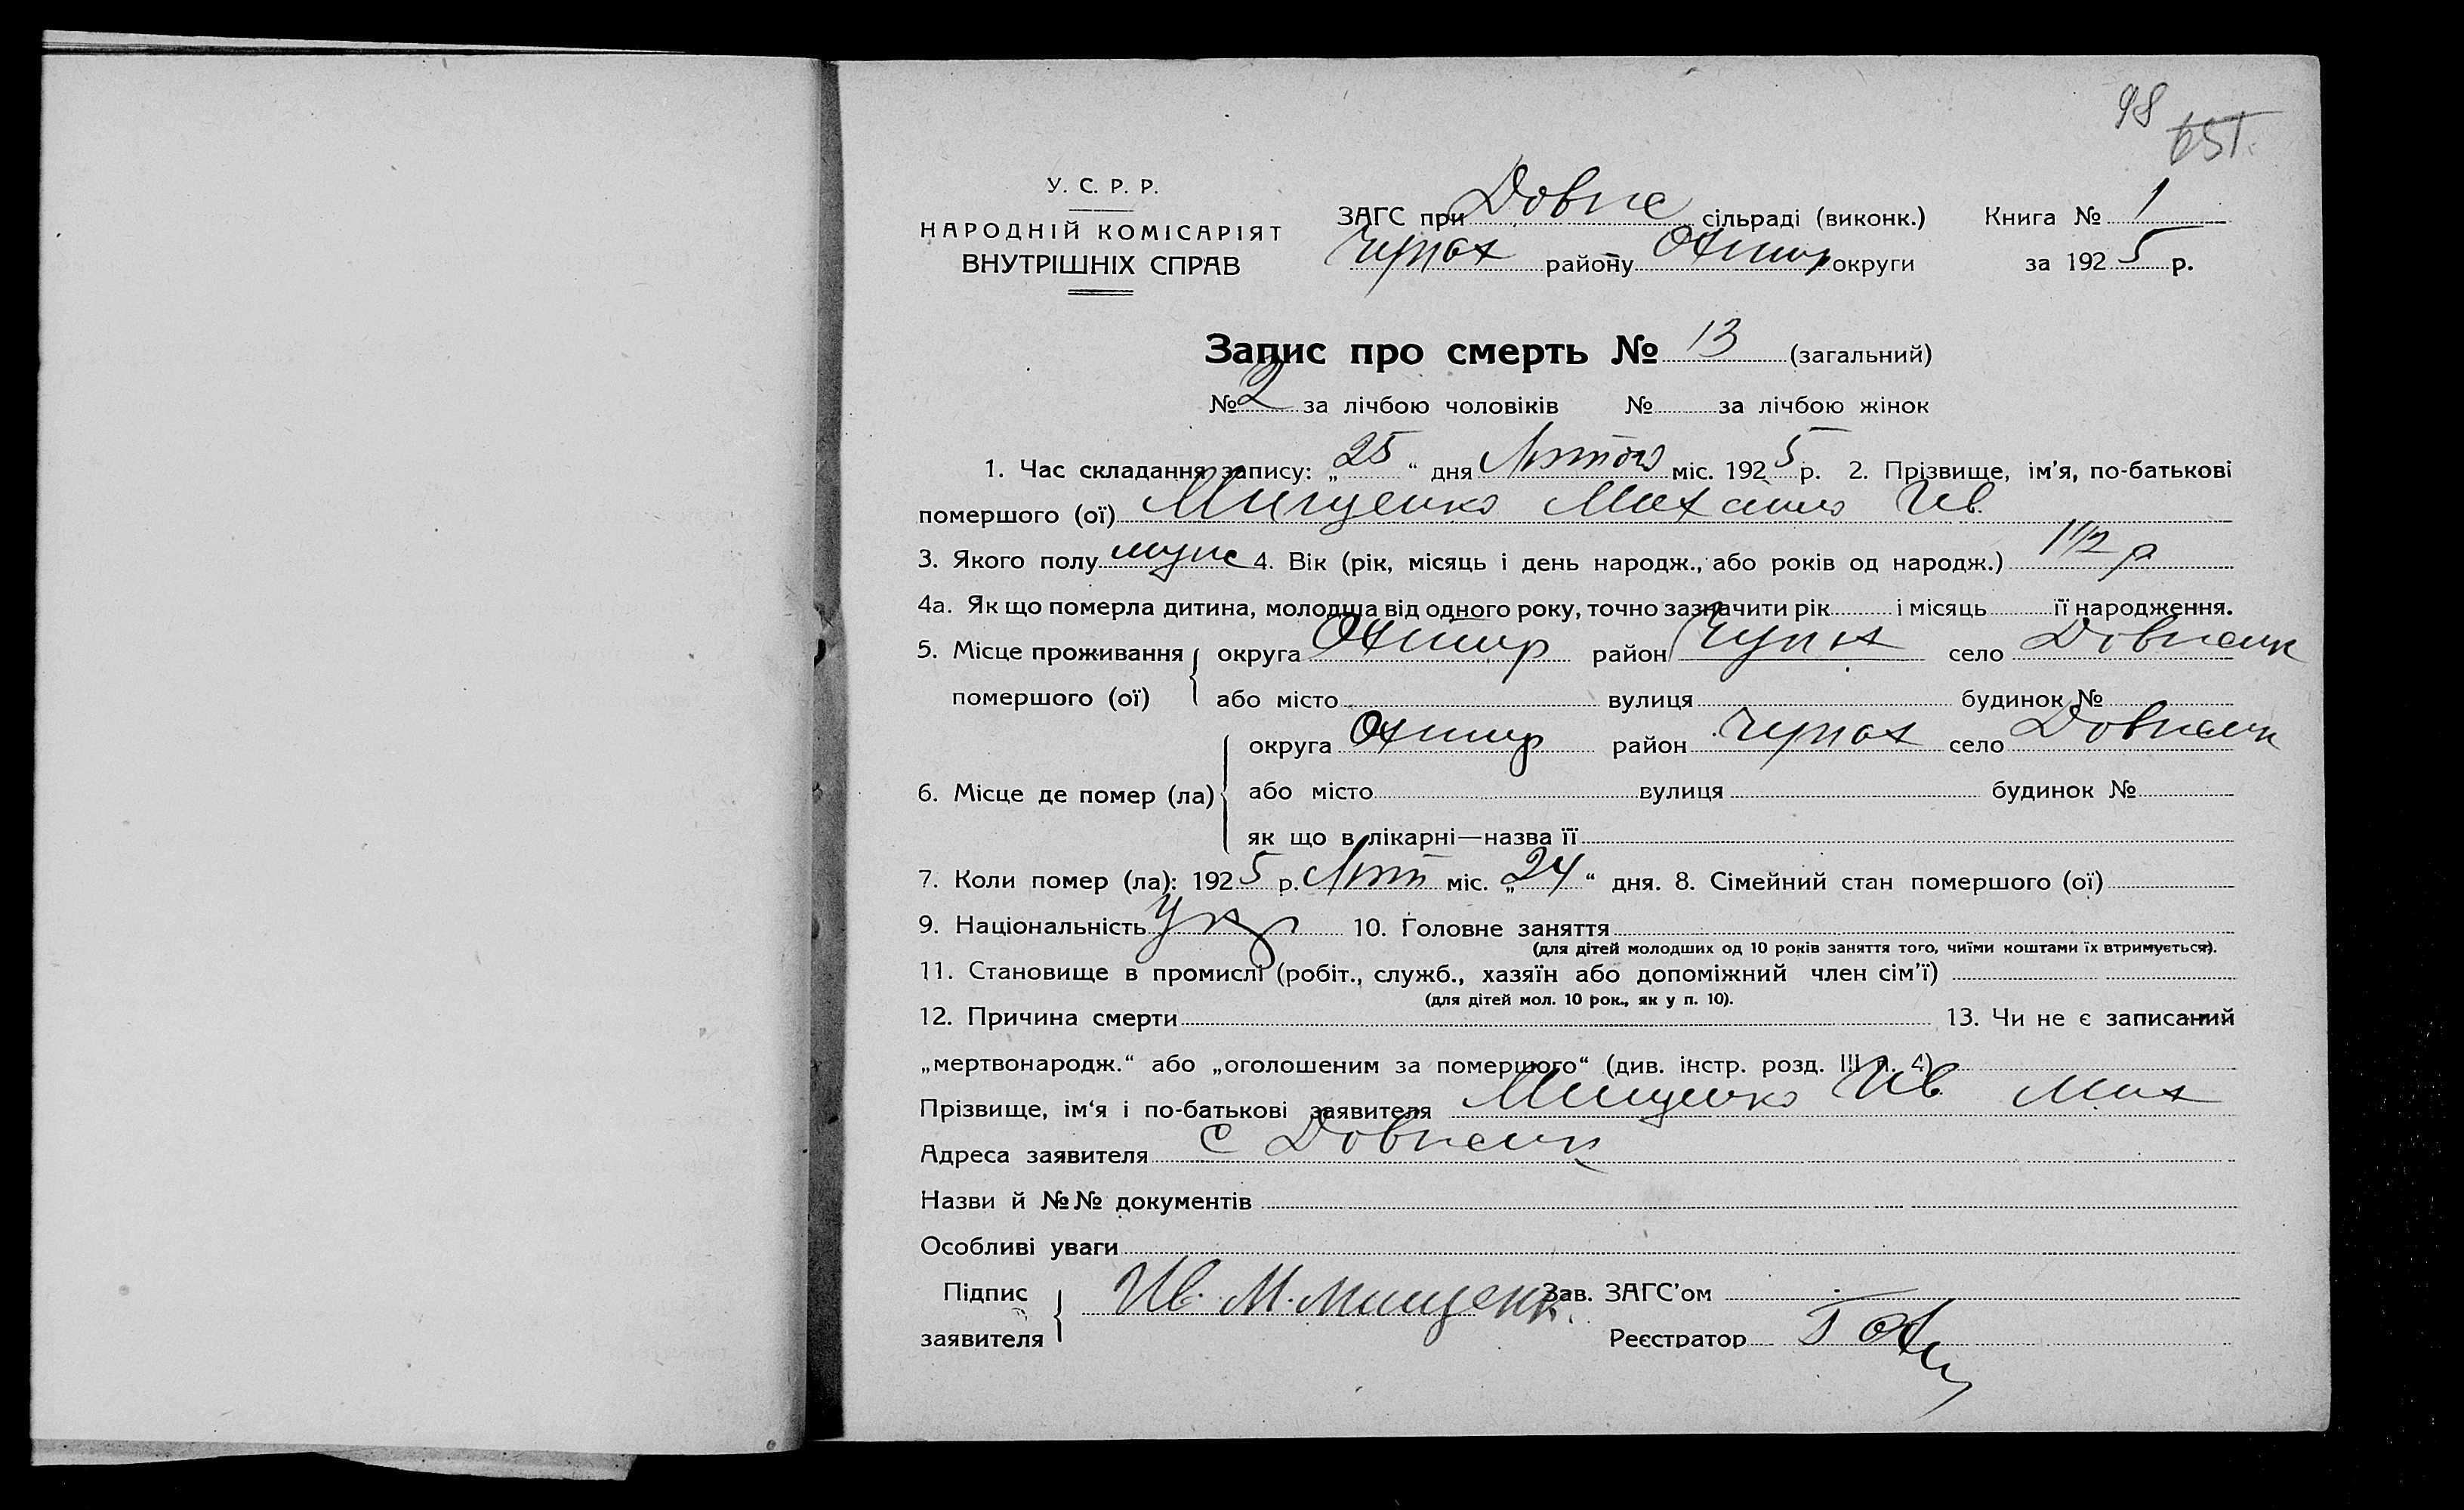 98
651.
У. С. Р. Р.
НАРОДНІЙ КОМІСАРІЯТ
ВНУТРІШНІХ СПРАВ
ЗАГС при Довже сільраді (виконк.) Книга № 1
Чупах району Охтир округи за 1925 р.
Запис про смерть № 13 (загальний)
№ 2 за лічбою чоловіків № за лічбою жінок
1. Час складання запису: „25“ дня Лютого міс. 1925 р. 2. Прізвище, ім'я, по-батькові
помершого (ої) Мищенко Михайло Ив.
3. Якого полу муже 4. Вік (рік, місяць і день народж., або років од народж.) 1 1/2 р
4а. Як що померла дитина, молодша від одного року, точно зазначити рік і місяць її народження.
5. Місце проживання округа Охтир район Чупах село Довженк
помершого (ої) або місто вулиця будинок №
округа Охтир район Чупах село Довженк
6. Місце де помер (ла) або місто вулиця будинок №
як що в лікарні—назва її
7. Коли помер (ла): 1925 р. Лют міс. „24“ дня. 8. Сімейний стан помершого (ої)
9. Національність Укр 10. Головне заняття
(для дітей молодших од 10 років заняття того, чиїми коштами їх втримується).
11. Становище в промислі (робіт., служб., хазяїн або допоміжний член сім'ї)
(для дітей мол. 10 рок., як у п. 10).
12. Причина смерти 13. Чи не є записаний
„мертвонародж.“ або „оголошеним за помершого“ (див. інстр. розд. III п. 4)
Прізвище, ім'я і по-батькові заявителя Мищенко Ив. Мих
Адреса заявителя С Довженк
Назви й №№ документів
Особливі уваги
Підпис Ив. М. Мищенк. Зав. ЗАГС'ом
заявителя Реєстратор